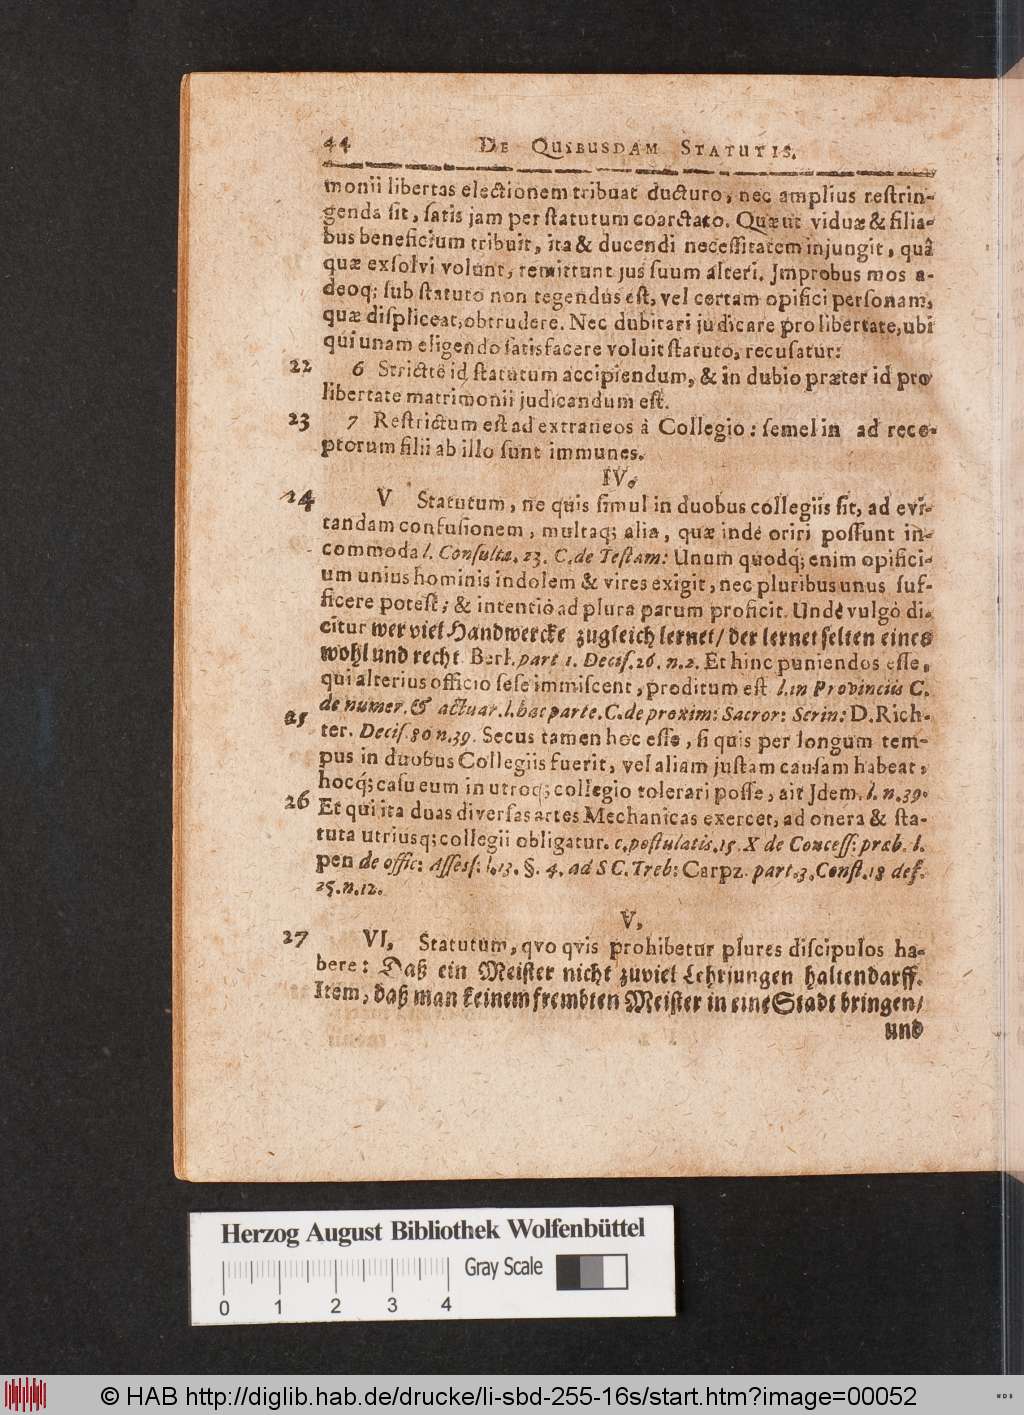 44 DE QUIBUSDAM STATUTIS.
monii libertas electionem tribuat ducturo, nec amplius restrin-
genda sit, satis jam per statutum coarctato. Quæ ut viduæ & filia-
bus beneficium tribuit, ita & ducendi necessitatem injungit, quâ
quæ exsolvi volunt, remittunt jus suum alteri. Jmprobus mos a-
deoq; sub statuto non tegendus est, vel certam opifici personam,
quæ displiceat, obtrudere. Nec dubitari judicare pro libertate, ubi
qui unam eligendo satisfacere voluit statuto, recusatur:
22 6 Strictè id statutum accipiendum, & in dubio præter id pro
libertate matrimonii judicandum est.
23 7 Restrictum est ad extraneos à Collegio: semel in ad rece-
ptorum filii ab illo sunt immunes.
IV.
24 V Statutum, ne quis simul in duobus collegiis sit, ad evi-
tandam confusionem, multaq; alia, quæ inde oriri possunt in-
commoda l. Consulta. 23. C. de Testam: Unum quodq; enim opifici-
um unius hominis indolem & vires exigit, nec pluribus unus suf-
ficere potest; & intentiô ad plura parum proficit. Unde vulgò di-
citur wer viel Handwercke zugleich lernet/ der lernet selten eines
wohl und recht Berl. part 1. Decis. 26. n. 2. Et hinc puniendos esse,
qui alterius officio sese immiscent, proditum est l. in Provinciis C.
de numer. & actuar. l. hac parte. C. de proxim: Sacror: Scrin: D. Rich-
25 ter. Decis. 80 n. 39. Secus tamen hoc esse, si quis per longum tem-
pus in duobus Collegiis fuerit, vel aliam justam causam habeat,
hocq; casu eum in utroq; collegio tolerari posse, ait Jdem. l. n. 39.
26 Et qui ita duas diversas artes Mechanicas exercet, ad onera & sta-
tuta utriusq; collegii obligatur. c. postulatis. 15. X de Concess: præb. l.
pen de offic: Assess: l. 13. §. 4. ad SC. Treb: Carpz. part. 3. Const. 18 def.
25. n. 12.
V,
27 VI, Statutum, qvo qvis prohibetur plures discipulos ha-
bere: Daß ein Meister nicht zuviel Lehrjungen halten darff.
Item, daß man keinem frembten Meister in eine Stadt bringen/
und
Herzog August Bibliothek Wolfenbüttel
Gray Scale
0 1 2 3 4
© HAB http://diglib.hab.de/drucke/li-sbd-255-16s/start.htm?image=00052